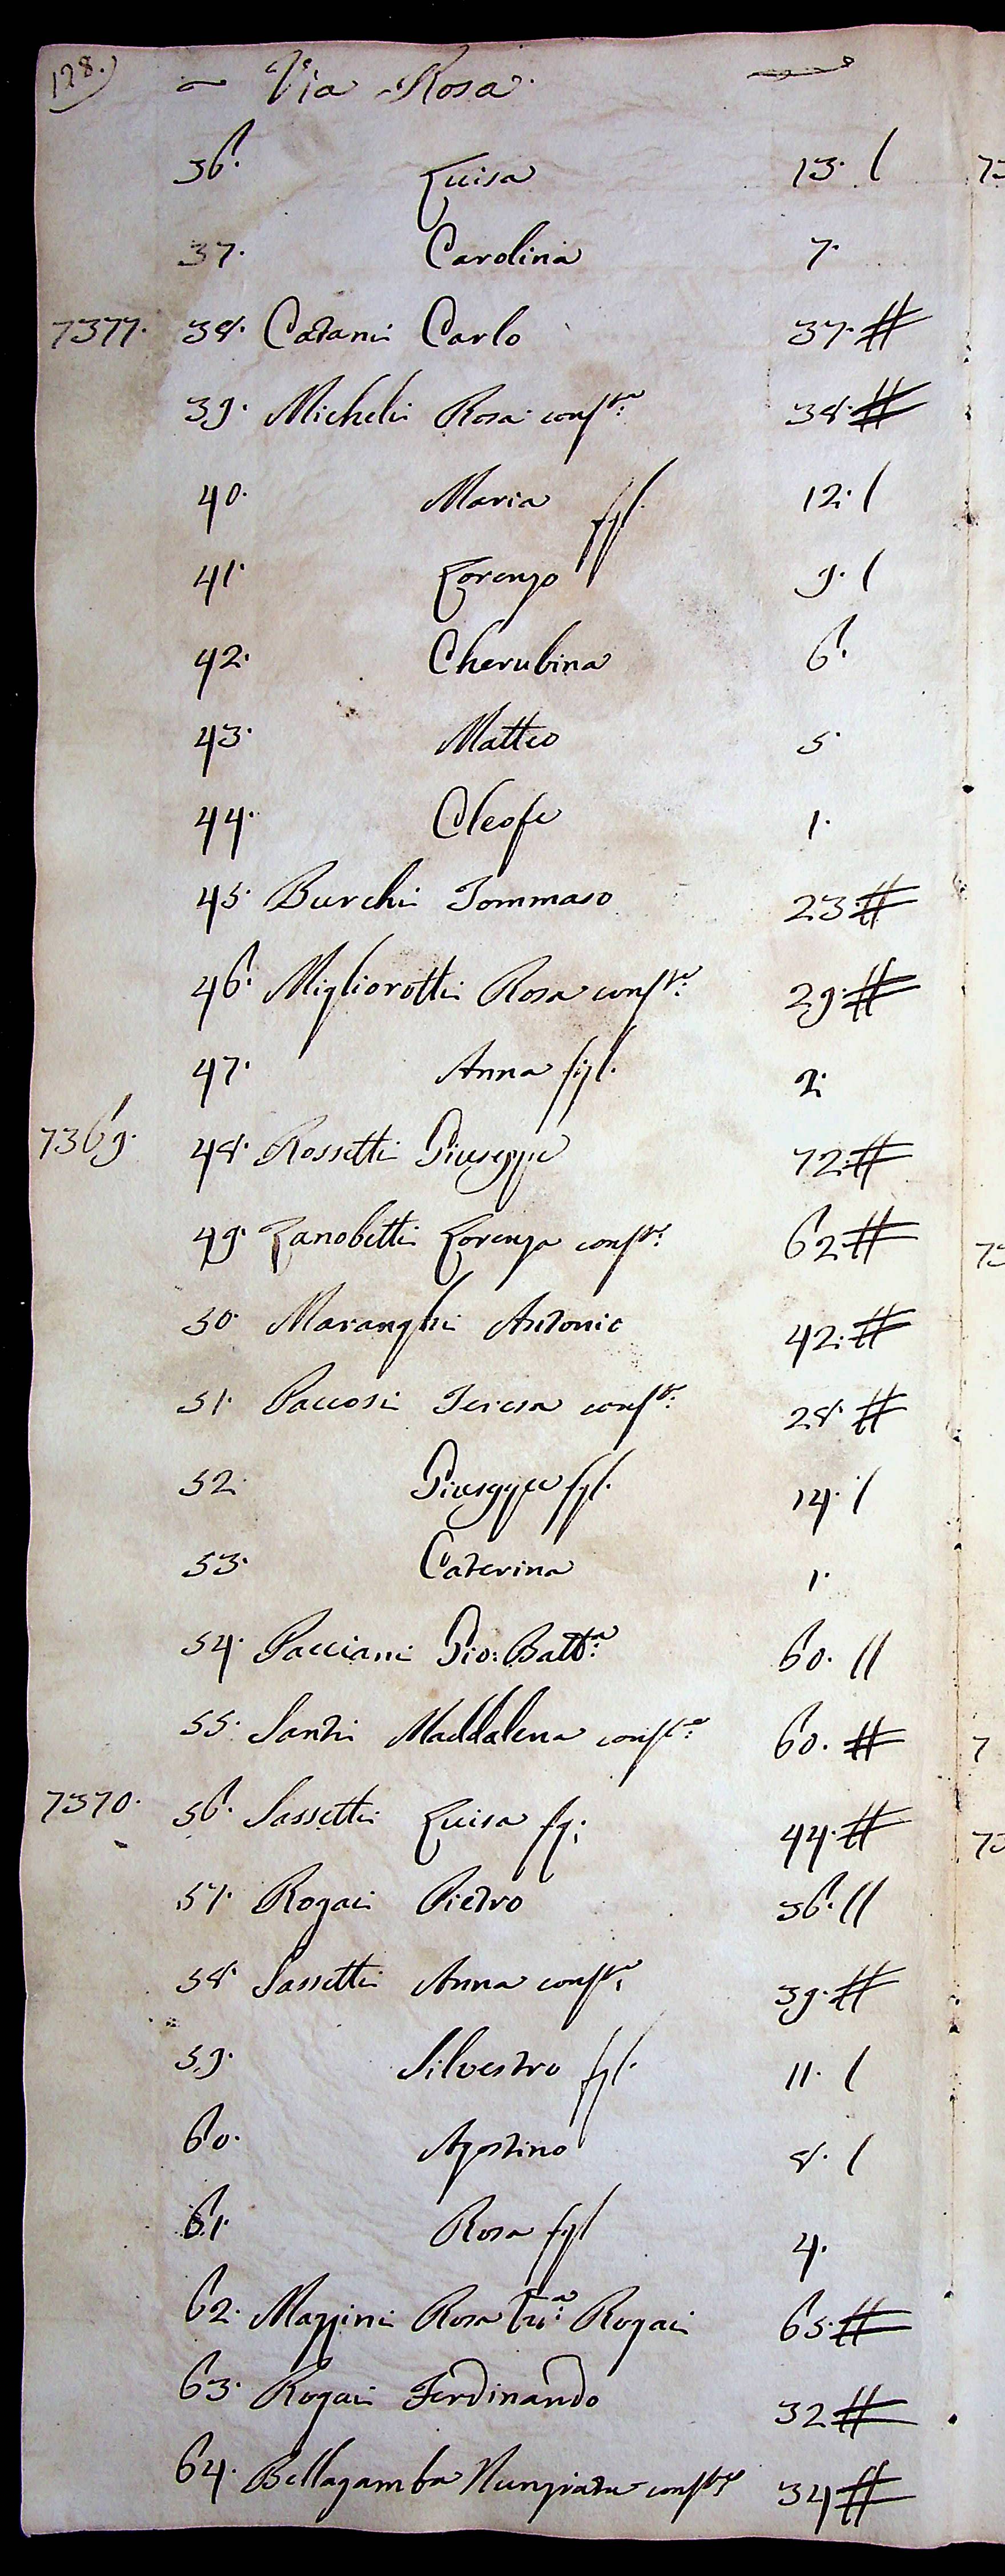 128.
Via Rosa
36. Luisa 13. /
37. Carolina 7.
7377. 38. Catani Carlo 37. #
39. Micheli Rosa conste: 38. #
40. Maria figl. 12. /
41. Lorenzo 9. /
42. Cherubina 6.
43. Matteo 5.
44. Cleofe 1.
45. Burchi Tommaso 23. #
46. Migliorotti Rosa conste: 29. #
47. Anna figl. 2.
7369. 48. Rossetti Giuseppe 72. #
49. Zanobetti Lorenza conste: 62. #
50. Maranghi Antonio 42. #
51. Paccosi Teresa conste: 28. #
52. Giuseppe figl. 14. /
53. Caterina 1.
54. Pacciani Gio: Batta: 60. //
55. Santi Maddalena conste: 60. #
7370. 56. Sassetti Luisa fg: 44. #
57. Rogai Pietro 36. //
58. Sassetti Anna conste: 39. #
59. Silvestro figl. 11. /
60. Agostino 8. /
61. Rosa figl 4.
62. Mazzini Rosa Va: Rogai 65. #
63. Rogai Ferdinando 32 #
64. Bellagamba Nunziata conste 34 #